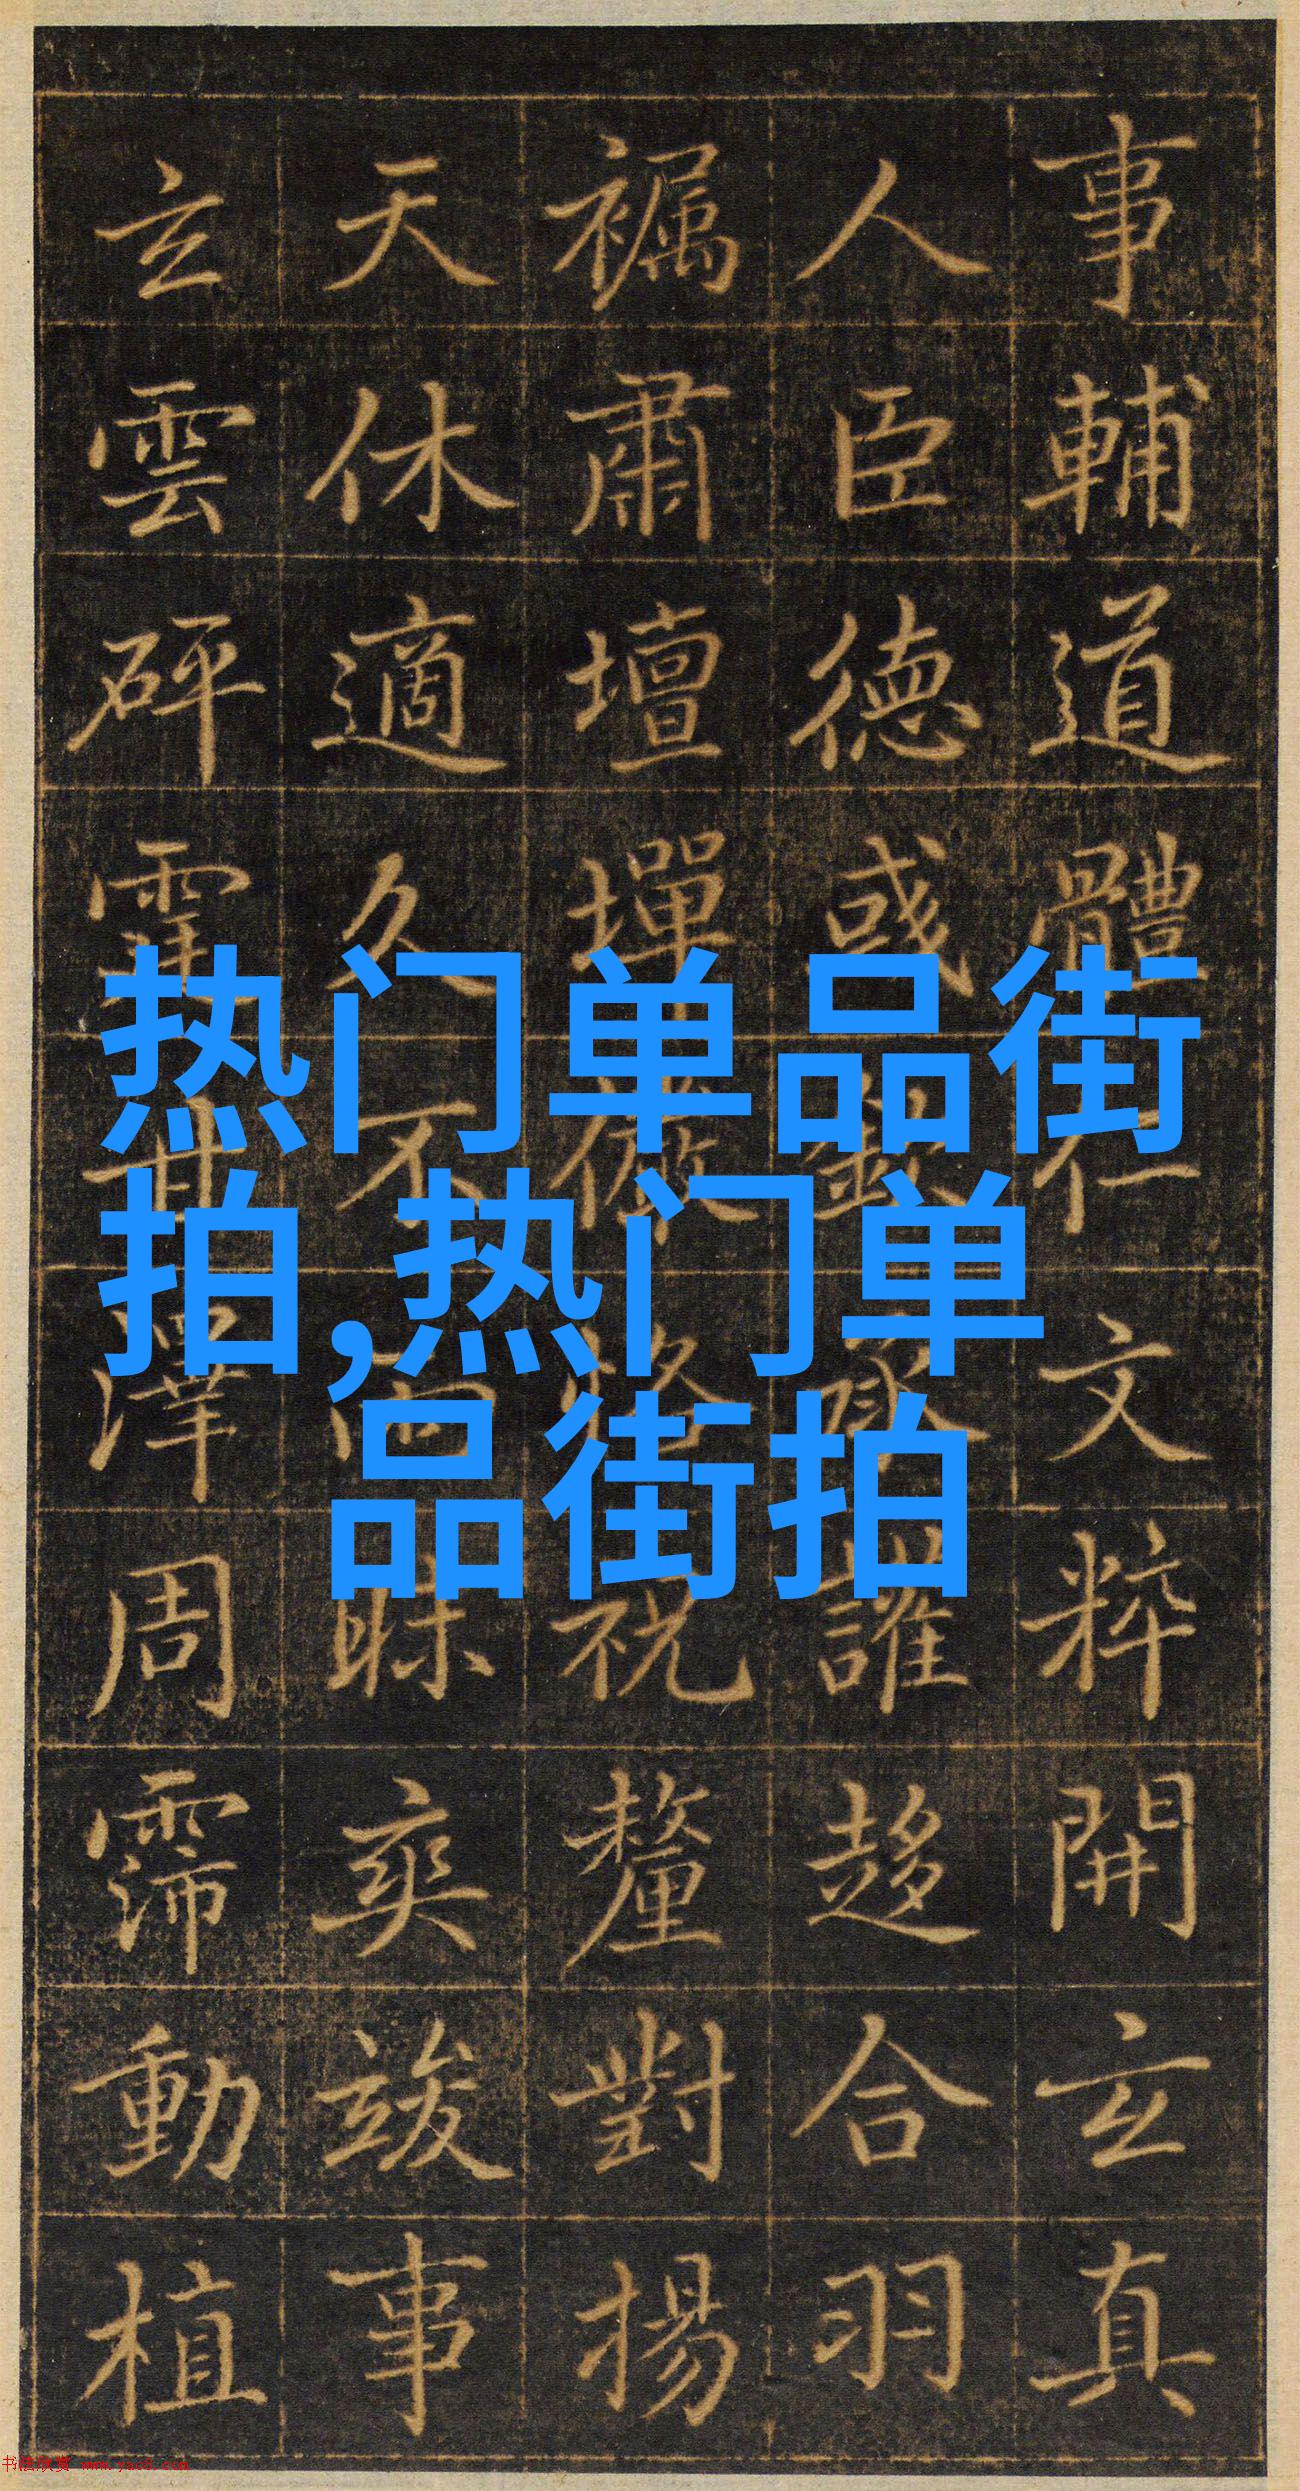 事輔道體仁文粹開玄真
人臣德誰趍合羽
肅壇墠儆恪祝釐對揚
天休適久不雨昧爽竣事
玄雲砰霆甘澤周霈動植
热门单品街
拍,热门单
品街拍
书法欣赏 www.yac8.com